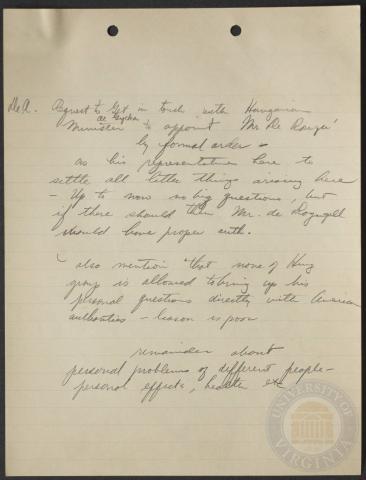 Request to get in touch with Hungarian
Minister to appoint Mr. De
by formal order -
as his representative here to
settle all little things arising here
- Up to now no big questions, but
if there should then Mr. de
should have proper auth.
also mention that none of Hung
group is allowed to bring up his
personal questions directly with American
authorities - liason is poor
remainder about
personal problems of different people -
personal effects, health etc
UNIVERSITY OF VIRGINIA